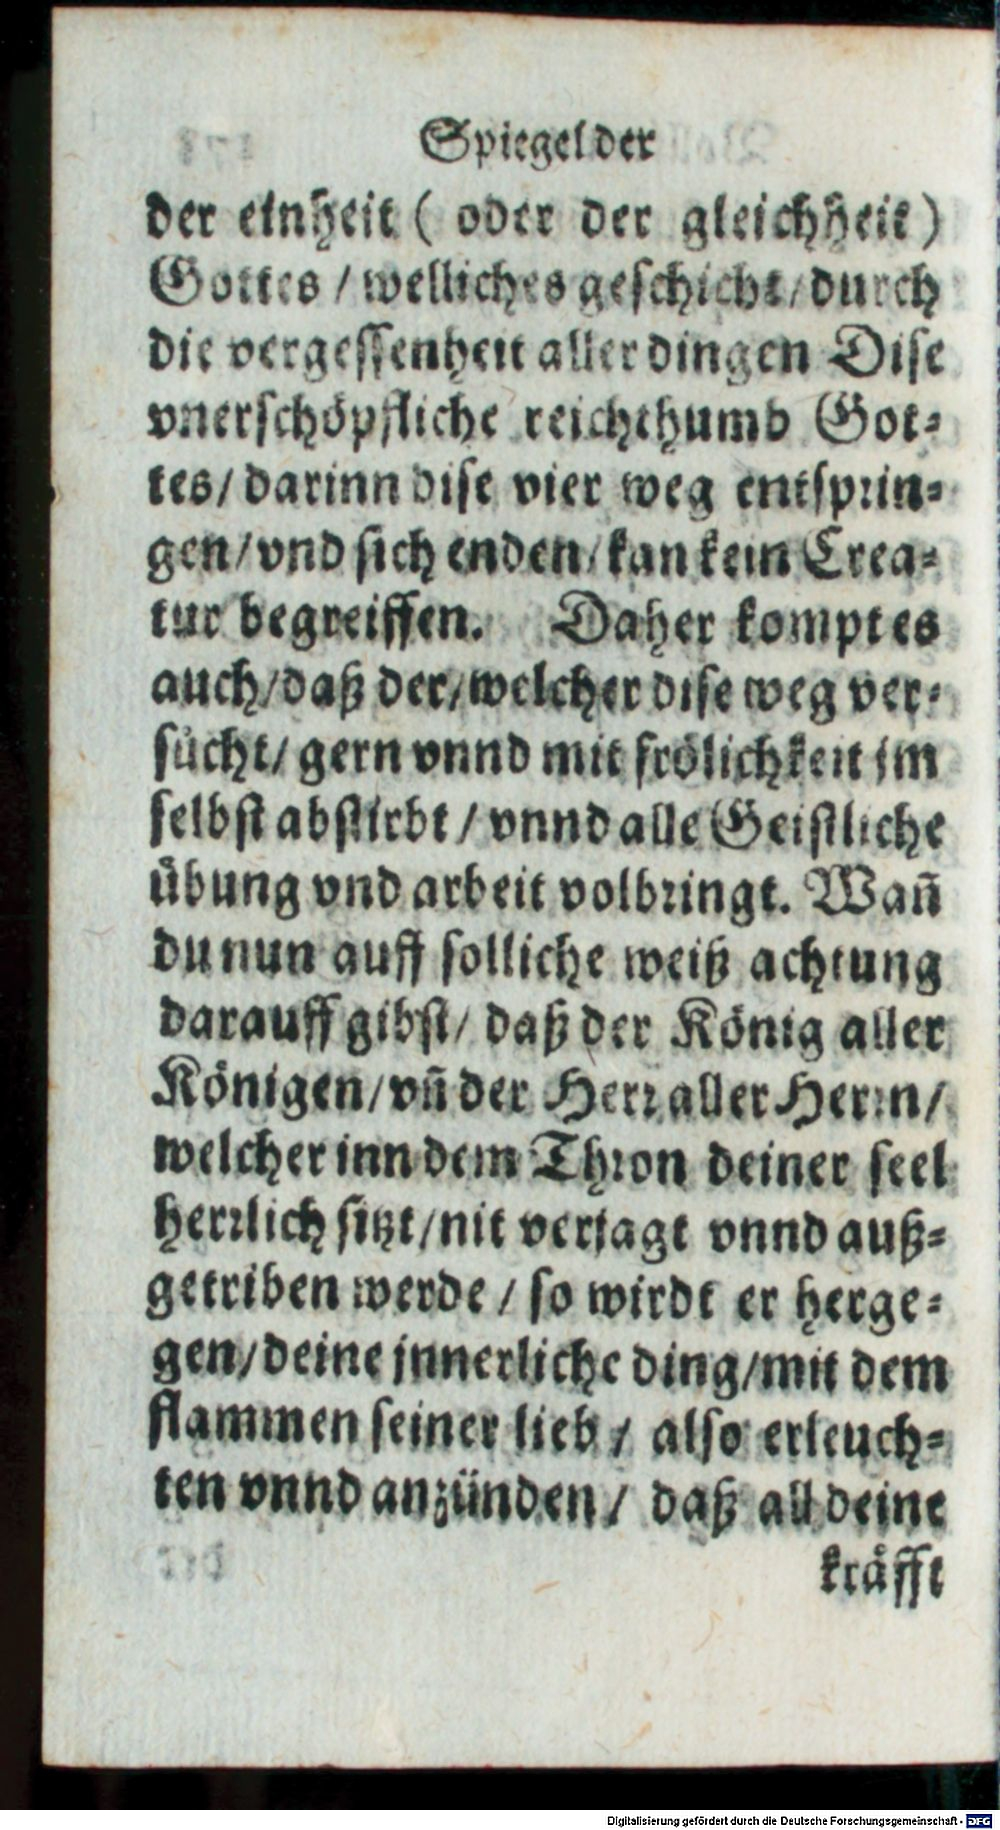 Spiegel der
der einheit ( oder der gleichheit )
Gottes / welliches geschicht / durch
die vergessenheit aller dingen Dise
vnerschöpfliche reichthumb Got⸗
tes / darinn dise vier weg entsprin⸗
gen / vnd sich enden / kan kein Crea⸗
tur begreiffen. Daher kompt es
auch / daß der / welcher dise weg ver⸗
sucht / gern vnnd mit frölichkeit jm
selbst abstirbt / vnnd alle Geistliche
übung vnd arbeit volbringt. Wañ
du nun auff solliche weiß achtung
darauff gibst / daß der König aller
Königen / vñ der Herr aller Herrn /
welcher inn dem Thron deiner seel
herrlich sitzt / nit verjagt vnnd auß⸗
getriben werde / so wirdt er herge⸗
gen / deine jnnerliche ding / mit dem
flammen seiner lieb / also erleuch⸗
ten vnnd anzünden / daß all deine
kräfft
Digitalisierung gefördert durch die Deutsche Forschungsgemeinschaft - DFG